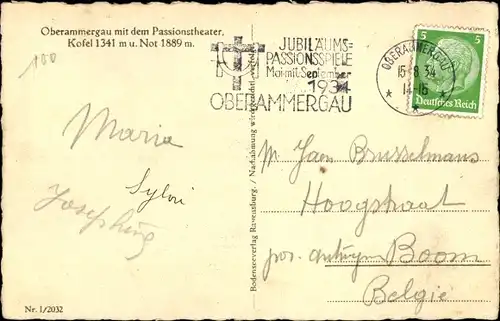 Oberammergau mit dem Passionstheater.
Kofel 1341 m u. Not 1889 m.
100
JUBILÄUMS=
PASSIONSSPIELE
Mai mit September
1934
OBERAMMERGAU
OBERAMMERGAU
15.8.34
14-16
* *
5 5
Deutsches Reich
Maria
Sylvi
Josephine
Bodenseeverlag Ravensburg. / Nachahmung wird
M. Jaen Brusselmans
Hoogstraat
Boom
Belgie
Nr. 1/2032